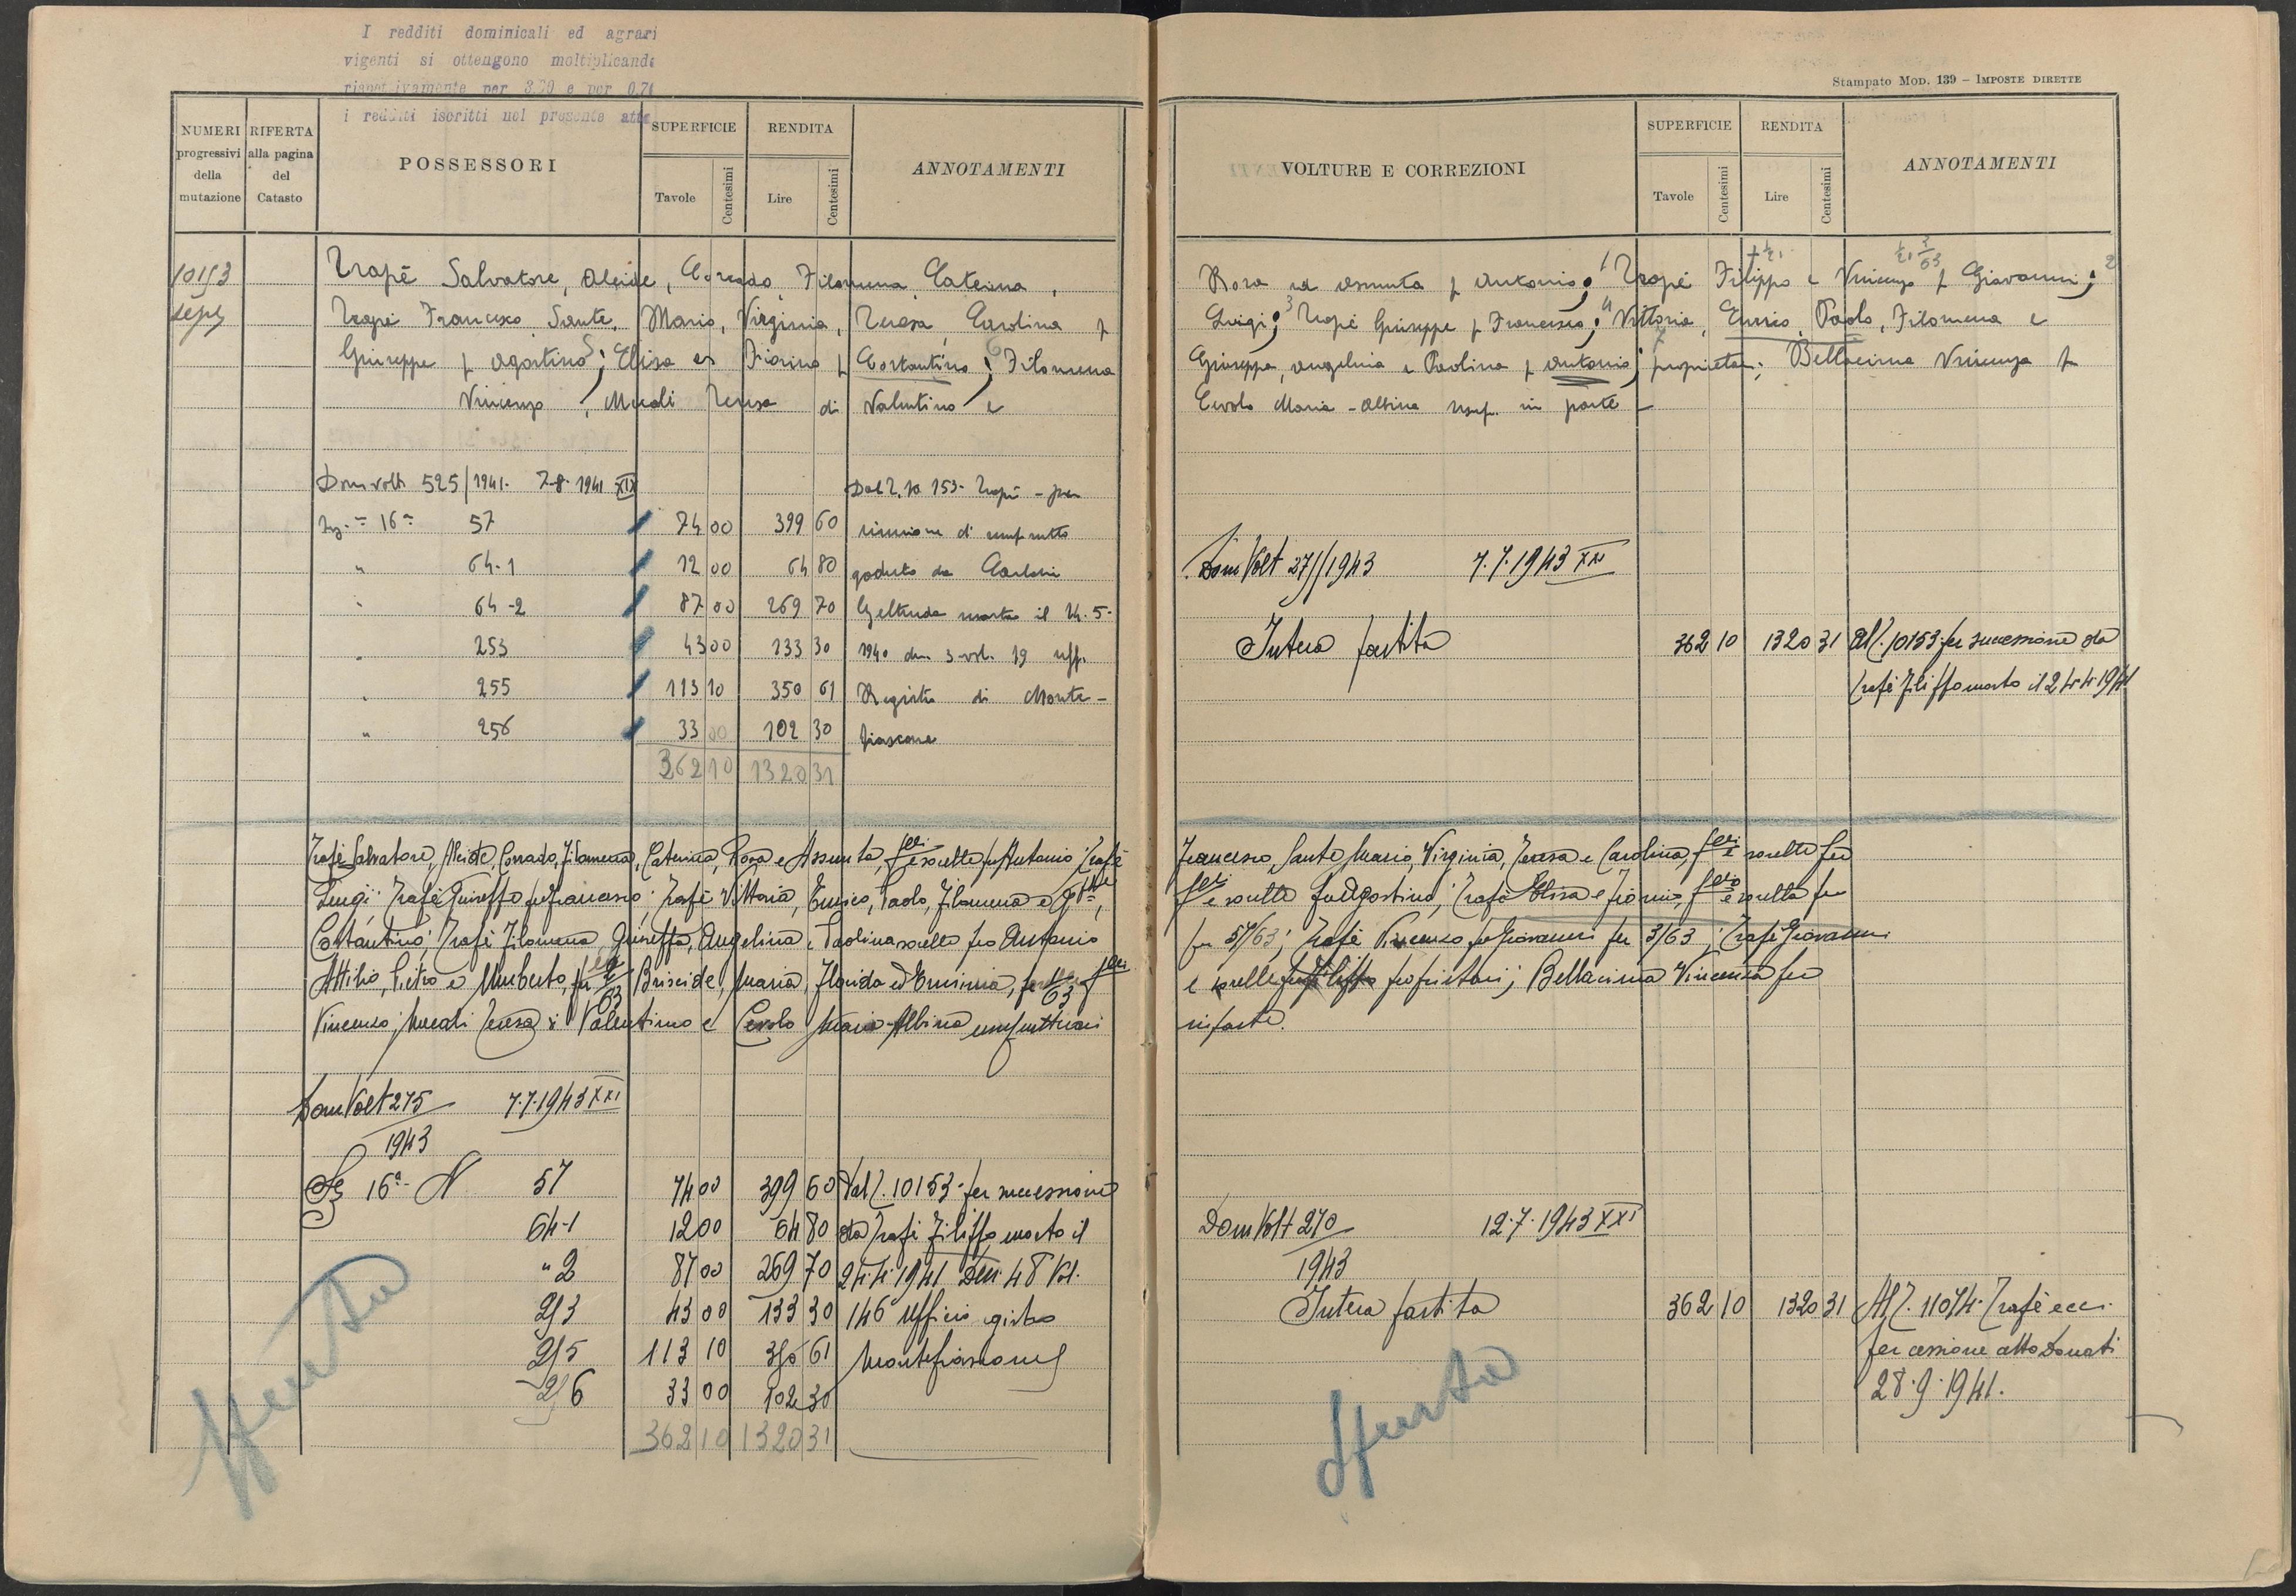 I redditi dominicali ed agrari
vigenti si ottengono moltiplicando
rispettivamente per 3,20 e per 0,74
i redditi iscritti nel presente atto
NUMERI progressivi della mutazione
RIFERTA alla pagina del Catasto
POSSESSORI
SUPERFICIE
Tavole
Centesimi
RENDITA
Lire
Centesimi
ANNOTAMENTI
10153
Trapè Salvatore, Alcide, Corrado, Filomena, Caterina,
Trapè Francesco, Sante, Mario, Virginia, Teresa, Carolina f
Giuseppe f Agostino; Elisa es Fiorino f Costantino; Filomena
Vincenzo, Mucali Teresa di Valentino e
Dom volt 525/1941. 7-8-1941 XIX
Sez. 16ª 57 74 00 399 60
" 64-1 12 00 64 80
" 64-2 87 00 269 70
" 253 43 00 133 30
" 255 113 10 350 61
" 256 33 00 102 30
362 10 1320 31
Dal 2. 10153 Trapè - per
riunione di usufrutto
goduto da Carloni
Geltrude morta il 14.5.
1940 den 3 vol. 19 uff.
Registro di Monte-
fiascone
Trapè Salvatore, Alcide, Corrado, Filomena, Caterina, Rosa e Assunta, f.lli e sorelle fu Antonio; Trapè
Luigi; Trapè Giuseppe fu Francesco; Trapè Vittoria, Enrico, Paolo, Filomena e G.ppe,
Costantino; Trapè Filomena, Giuseppa, Angelina e Paolina sorelle fu Antonio
Attilio, Pietro e Umberto, Briseide, Maria, Florida ed Erminia, f.lli
Vincenzo; Mucali Teresa di Valentino e Cevolo Maria-Albina usufruttuari
Dom Volt 275/1943 7.7.1943 XXI
Sez 16ª N 57 74 00 399 60
64-1 12 00 64 80
" 2 87 00 269 70
253 43 00 133 30
255 113 10 350 61
256 33 00 102 30
362 10 1320 31
Dal 2. 10153 per successione
da Trapè Filippo morto il
24.4.1941 Den. 48 Vol.
146 Ufficio registro
Montefiascone
Stampato MOD. 139 – IMPOSTE DIRETTE
VOLTURE E CORREZIONI
SUPERFICIE
Tavole
Centesimi
RENDITA
Lire
Centesimi
ANNOTAMENTI
Rosa ed Assunta f Antonio; Trapè Filippo e Vincenzo f Giovanni;
Luigi; Trapè Giuseppe f Francesco; Vittoria, Enrico, Paolo, Filomena e
Giuseppa, Angelina e Paolina f Antonio; proprietari; Bellacima Vincenza f
Cevolo Maria-Albina usuf. in parte
Dom Volt 275/1943 7.7.1943 XXI
Intera partita 362 10 1320 31
Al 2. 10153 per successione da
Trapè Filippo morto il 24.4.1941
Francesco, Sante, Mario, Virginia, Teresa e Carolina, f.lli e sorelle fu
f.lli e sorelle fu Agostino; Trapè Elisa e Fiorino, f.llo e sorella fu
per 57/63; Trapè Vincenzo fu Giovanni per 3/63; Trapè Giovanni
e sorelle fu Filippo proprietari; Bellacima Vincenza fu
in parte.
Dom Volt 270/1943 12.7.1943 XXI
Intera partita 362 10 1320 31
Al 2. 11074 Trapè ecc.
per cessione atto Donati
28.9.1941.